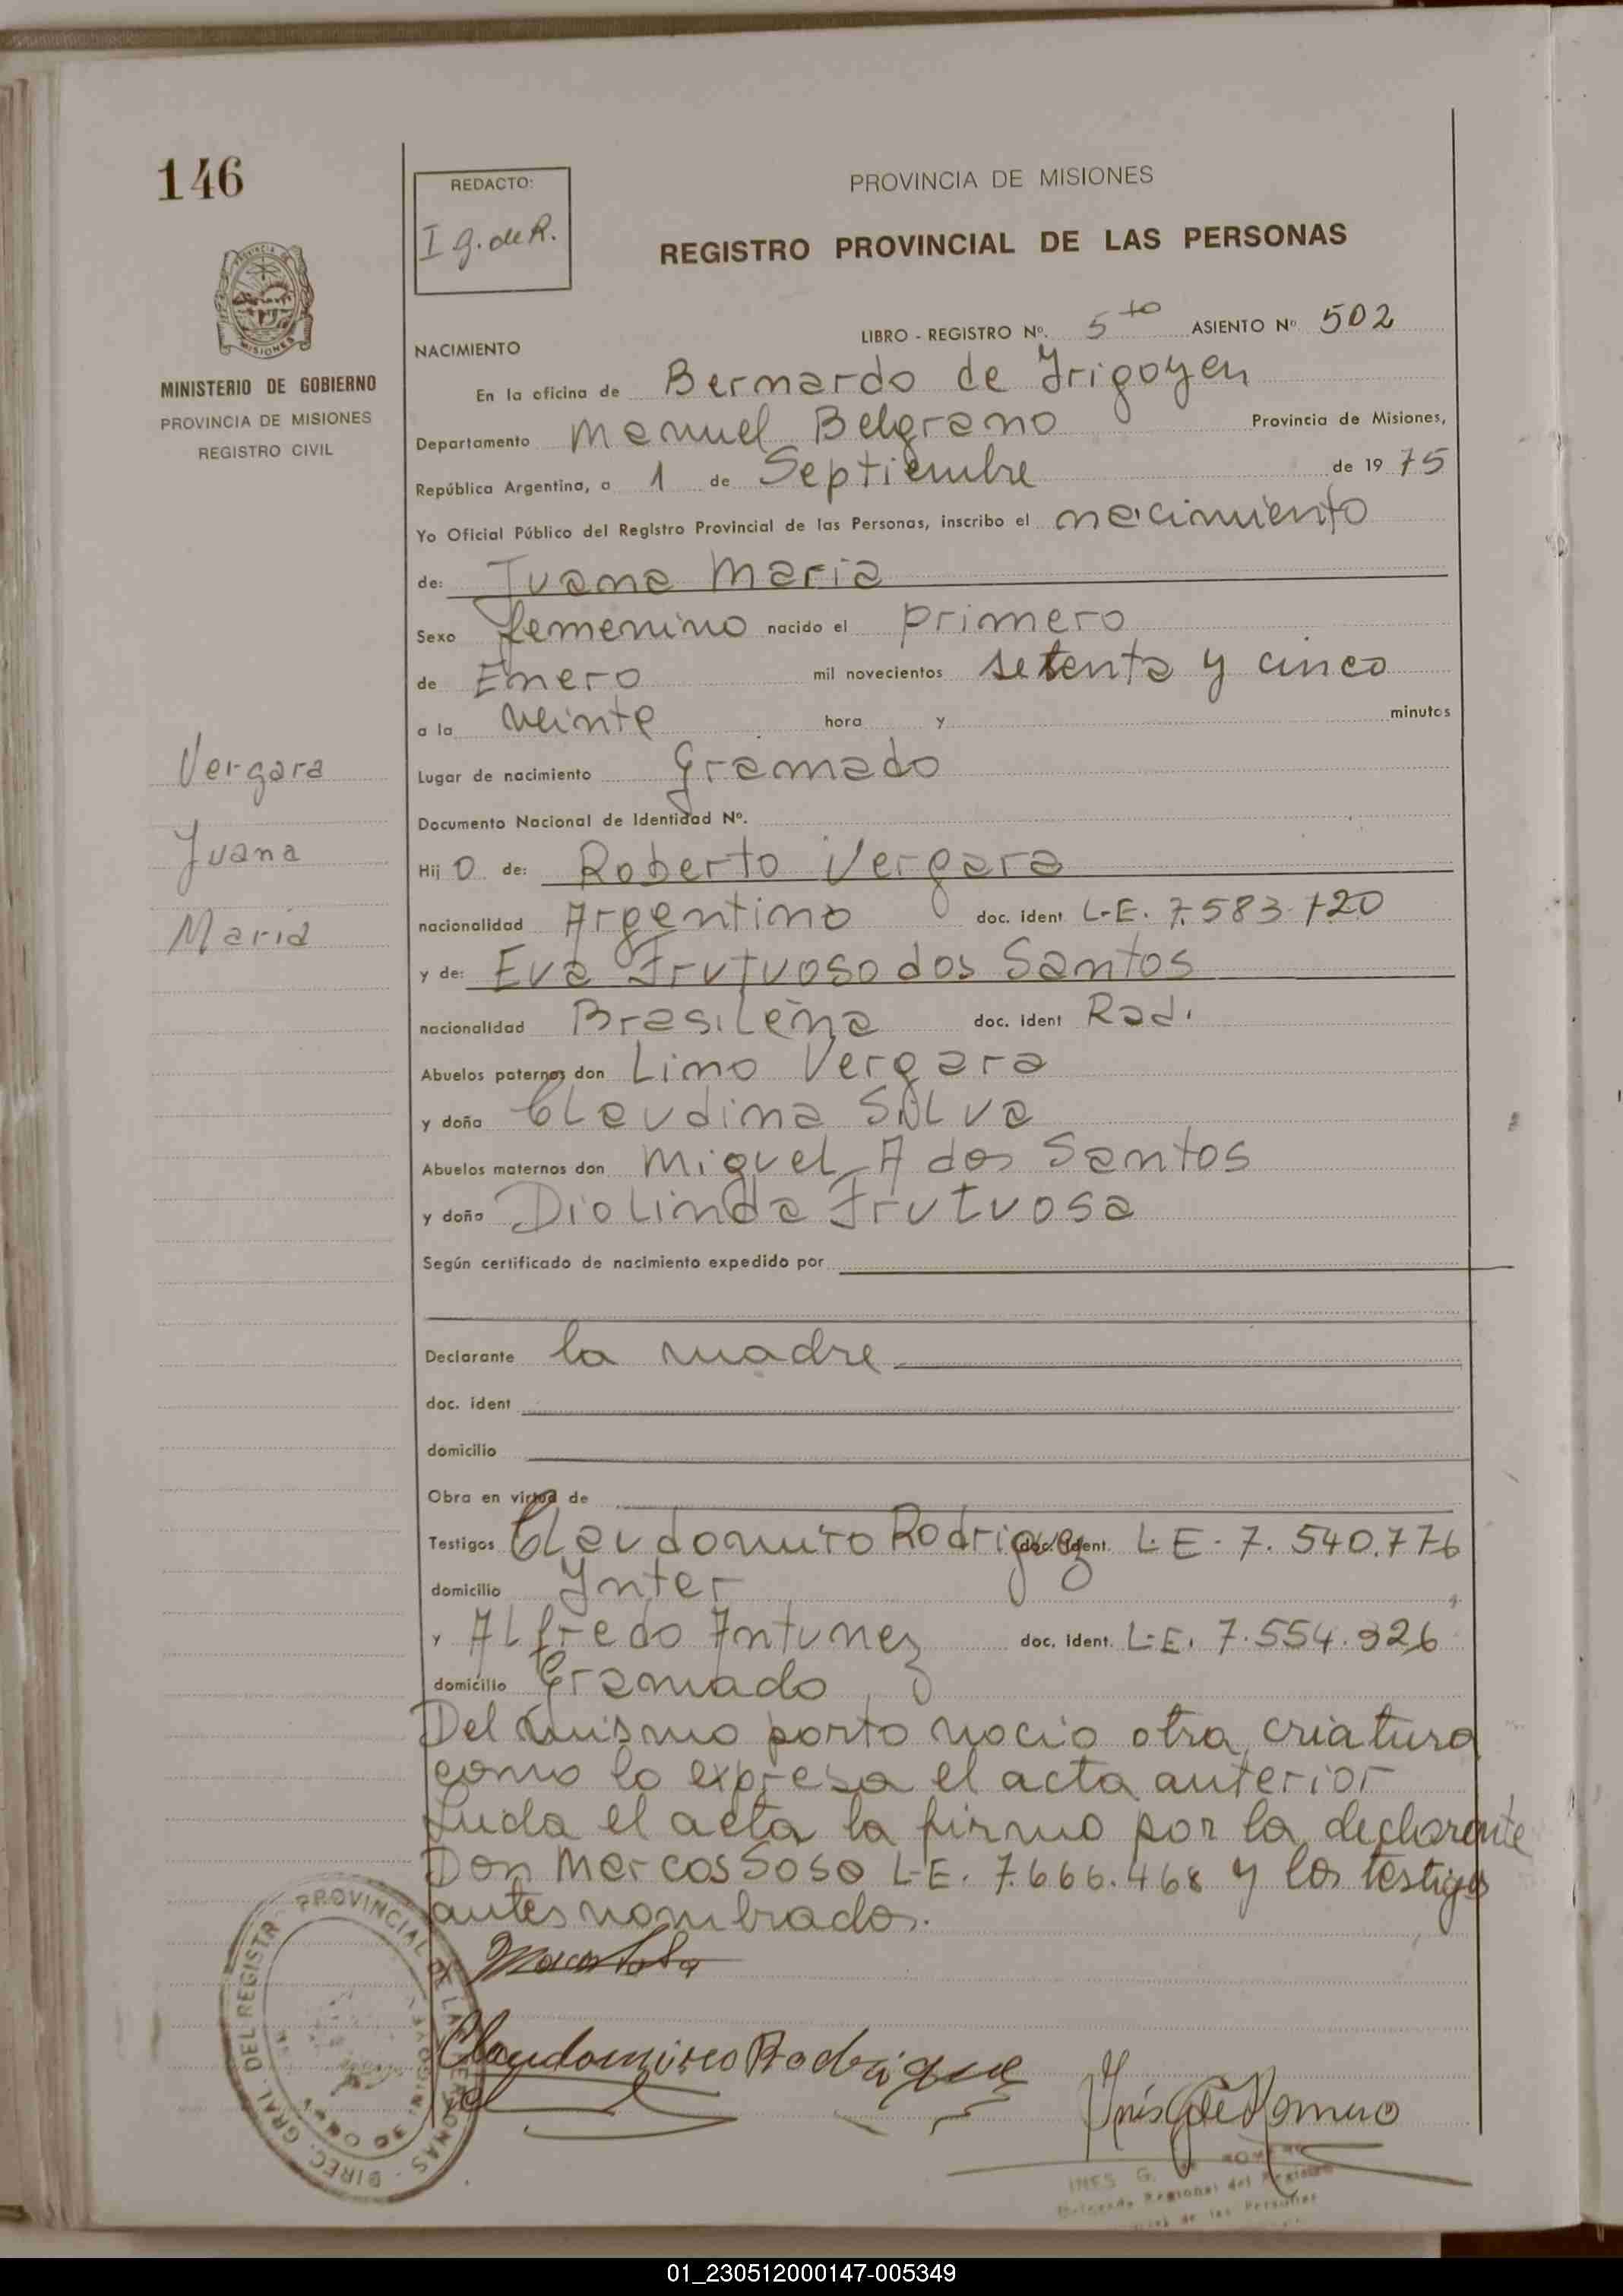 146
REDACTO:
I g. de R.
PROVINCIA DE MISIONES
REGISTRO PROVINCIAL DE LAS PERSONAS
MISIONES
MINISTERIO DE GOBIERNO
PROVINCIA DE MISIONES
REGISTRO CIVIL
LIBRO - REGISTRO Nº. 5to ASIENTO Nº 502
NACIMIENTO
En la oficina de Bernardo de Irigoyen
Departamento Manuel Belgrano Provincia de Misiones,
República Argentina, a 1 de Septiembre de 19 75
Yo Oficial Público del Registro Provincial de las Personas, inscribo el nacimiento
de: Juana Maria
Sexo femenino nacido el primero
de Enero mil novecientos setenta y cinco
a la veinte hora y minutos
Lugar de nacimiento Gramado
Documento Nacional de Identidad Nº.
Vergara
Juana
Maria
Hij O de: Roberto Vergara
nacionalidad Argentino doc. ident L-E. 7.583.120
y de: Eva Frutuoso dos Santos
nacionalidad Brasileña doc. ident Rad.
Abuelos paternos don Lino Vergara
y doña Claudina Silva
Abuelos maternos don Miguel A dos Santos
y doña Diolinda Frutuosa
Según certificado de nacimiento expedido por
Declarante la madre
doc. ident
domicilio
Obra en virtud de
Testigos Claudomiro Rodriguez doc. ident. L.E-7.540.776
domicilio Inter
y Alfredo Antunez doc. ident. L.E. 7.554.926
domicilio Gramado
Del mismo parto nacio otra criatura
como lo expresa el acta anterior
Luida el acta la firmo por la declarante
Don Marcos Sosa L-E. 7.666.468 y los testigos
antes nombrados.
Marcos Sosa
Claudomiro Rodrigue
Inés G de Romero
DIREC. GRAL. DEL REGISTRO PROVINCIAL DE LAS PERSONAS
INES G. DE ROMERO
Delegada Regional del Registro
de las Personas
01_230512000147-005349